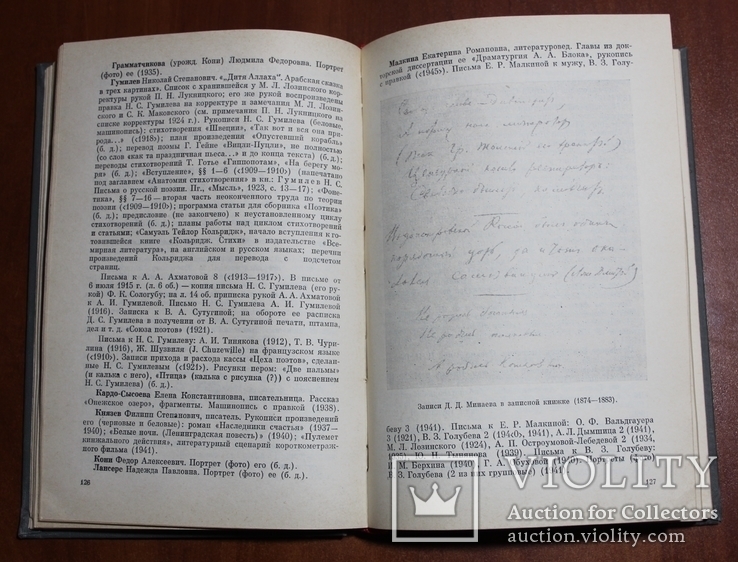 Грамматчикова (урожд. Кони) Людмила Федоровна. Портрет
(фото) ее (1935).
Гумилев Николай Степанович. «„Дитя Аллаха“. Арабская сказка
в трех картинах». Список с хранившейся у М. Л. Лозинского кор-
ректуры рукой П. Н. Лукницкого; его же рукой воспроизведены
правка Н. С. Гумилева на корректуре и замечания М. Л. Лозин-
ского и С. К. Маковского (см. примечания П. Н. Лукницкого
к корректуре 1924 г.). Рукописи Н. С. Гумилева (беловые,
машинопись); стихотворения «Швеции», «Так вот и вся она при-
рода...» (с1918)»; план произведения «Опустевший корабль»
(б. д.); перевод поэмы Г. Гейне «Вицли-Пуцли», не полностью
(со слов «как на праздничная пьеса...» и до конца текста) (б. д.);
переводы стихотворений Т. Готье «Гиппопотам», «На берегу
моря» (б. д.); «Вступление», §§ 1—6 (с1909—1910)» (напечатано
под заглавием «Анатомия стихотворения» в кн.: Гумилев Н. С.
Письма о русской поэзии. Пг., «Мысль», 1923, с. 13—17); «Фоне-
тика», §§ 7—16 — вторая часть неоконченного труда по теории
поэзии (с1909—1910)»; программа статьи для сборника «Поэтика»
(б. д.); предисловие (не закончено) к неустановленному циклу
стихотворений (б. д.); планы работы над циклом стихотворений и
статьями; «Самуэль Тейлор Кольридж», начало вступления к го-
товившейся книге «Кольридж. Стихи» в издательстве «Все-
мирная литература», на английском и русском языках; перечни
произведений Кольриджа для перевода с подсчетом
страниц.
Письма к А. А. Ахматовой 8 (с1913—1917)». В письме от
6 июля 1915 г. (л. 6 об.) — копия письма Н. С. Гумилева (его ру-
кой) Ф. К. Сологубу; на л. 14 об. приписка рукой А. А. Ахматовой
к А. И. Гумилевой. Письмо Н. С. Гумилева А. И. Гумилевой
(1916). Записка к В. А. Сутугиной; на обороте ее расписка
Д. С. Гумилева в получении от В. А. Сутугиной печати, штампа,
дел и т. д. «Союза поэтов» (1921).
Письма к Н. С. Гумилеву: А. И. Тинякова (1912), Т. В. Чури-
лина (1916), Ж. Шузвиля (J. Chuzewille) на французском языке
(с1910)». Записи прихода и расхода кассы «Цеха поэтов», сделан-
ные Н. С. Гумилевым (с1921)». Рисунки пером: «Две пальмы»
(и калька с него), «Птица» (калька с рисунка (?)) с пояснением
Н. С. Гумилева) (б. д.).
Кардо-Сысоева Елена Константиновна, писательница. Рассказ
«Онежское озеро», фрагменты. Машинопись с правкой (1938).
Князев Филипп Степанович, писатель. Рукописи произведений
его (черновые и беловые): роман «Наследники счастья» (1937—
1940); «Белые ночи. (Ленинградская повесть)» (1940); «Пулемет
кинжального действия», литературный сценарий короткометраж-
ного фильма (1941).
Кони Федор Алексеевич. Портрет (фото) его (б. д.).
Лансере Надежда Павловна. Портрет (фото) ее (б. д.).
126
Малкина Екатерина Романовна, литературовед. Главы из док-
торской диссертации ее «Драматургия А. А. Блока», рукопись
с правкой (с1945»). Письма Е. Р. Малкиной к мужу, В. З. Голу-
Записи Д. Д. Минаева в записной книжке (1874—1883).
беву 3 (1941). Письма к Е. Р. Малкиной: О. Ф. Вальдгауера
3 (1921), В. З. Голубева 2 (1941), А. Л. Дымшица 2 (1941),
М. Л. Лозинского (1924), А. П. Остроумовой-Лебедевой 2 (1934,
Ю. Н. Тынянова (1939). Письма к В. З. Голубеву:
И. М. Берхина (1940), Г. А. (1940). Портреты (фото)
В. З. Голубева (2 из них групповые) (1941).
127
VIOLITY
Auction for Collectors
auction.violity.com